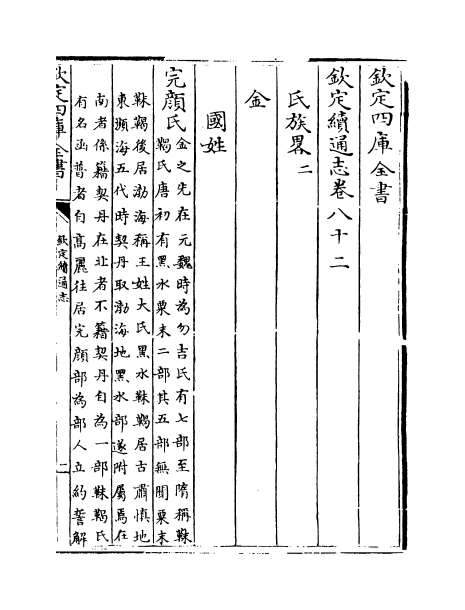 欽定四庫全書
欽定續通志卷八十二
氏族畧二
金
國姓
完顏氏金之先在元魏時為勿吉氏有七部至隋稱靺
鞨氏唐初有黑水粟末二部其五部無聞粟末
靺鞨後居渤海稱王姓大氏黑水靺鞨居古肅慎地
東瀕海五代時契丹取渤海地黑水部遂附屬焉在
南者係籍契丹在北者不籍契丹自為一部靺鞨氏
有名函普者自高麗往居完顏部為部人立約誓解
欽定四庫全書
欽定續通志